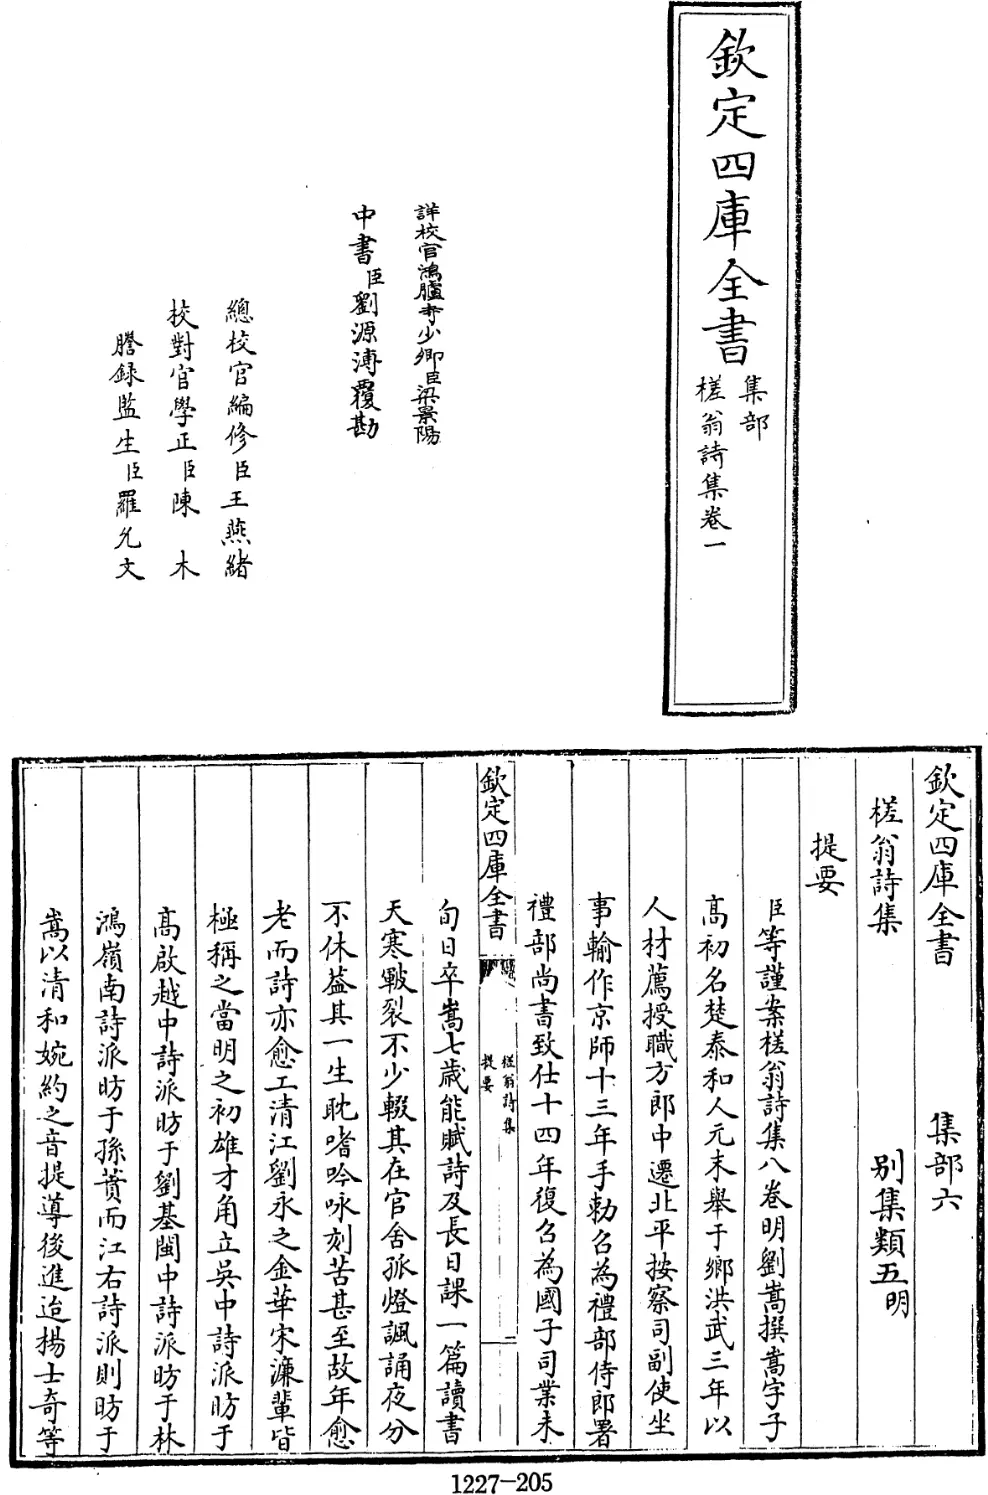 欽定四庫全書
集部
槎翁詩集卷一
詳校官鴻臚寺少卿臣梁景陽
中書臣劉源溥覆勘
總校官編修臣王燕緒
校對官學正臣陳木
謄錄監生臣羅允文
欽定四庫全書 集部六
槎翁詩集 别集類五明
提要
臣等謹案槎翁詩集八卷明劉嵩撰嵩字子
高初名楚泰和人元末舉于鄉洪武三年以
人材薦授職方郎中遷北平按察司副使坐
事輸作京師十三年手勅召為禮部侍郎署
禮部尚書致仕十四年復召為國子司業未
欽定四庫全書
槎翁詩集
提要
二
旬日卒嵩七歲能賦詩及長日課一篇讀書
天寒皸裂不少輟其在官舍孤燈諷誦夜分
不休葢其一生耽嗜吟咏刻苦甚至故年愈
老而詩亦愈工清江劉永之金華宋濂輩皆
極稱之當明之初雄才角立吳中詩派昉于
高啟越中詩派昉于劉基閩中詩派昉于林
鴻嶺南詩派昉于孫蕡而江右詩派則昉于
嵩以清和婉約之音提導後進迨楊士奇等
1227-205